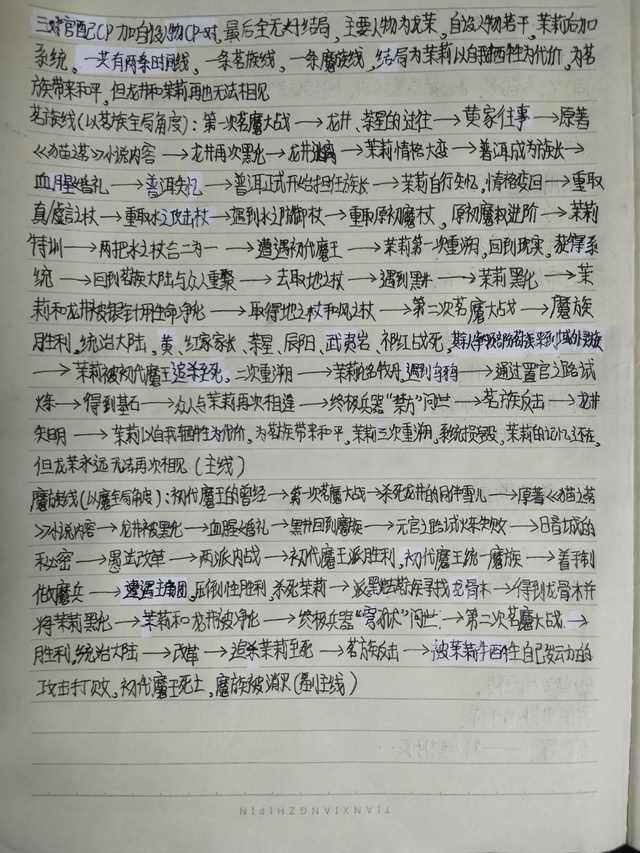 三对官配CP加自设人物CP一对,最后全无好结局,主要人物为龙茉,自设人物若干,茉莉后加
系统,一共有两条时间线,一条茗族线,一条魔族线,结局为茉莉以自我牺牲为代价,为茗
族带来和平,但龙井和茉莉再也无法相见
茗族线(以茗族全局角度):第一次茗魔大战→龙井、茶星的过往→黄家往事→原著
《猫茗》小说内容→龙井再次黑化→龙井→茉莉情格大变→普洱成为族长→
血腥婚礼→普洱失忆→普洱正式开始担任族长→茉莉自行失忆,情格变回→重取
真/虚言之杖→重取水之攻击杖→遇到水之防御杖→重取原初魔杖,原初魔杖进阶→茉莉
特训→两把水之杖合二为一→遭遇初代魔王→茉莉第一次重溯,回到现实,获得系
统→回到茗族大陆与众人重聚→去取地之杖→遇到黑井→茉莉黑化→茉
莉和龙井被银针用生命净化→取得地之杖和风之杖→第二次茗魔大战→魔族
胜利,统治大陆,黄、红家家长、茶星、辰阳、武夷岩、祁红战死,
→茉莉被初代魔王追杀至死,二次重溯→茉莉化名牧丹,遇到→通过元官之路试
炼→得到基石→众人与茉莉再次相逢→终极兵器“禁方”问世→茗族反击→龙井
失明→茉莉以自我牺牲为代价,为茗族带来和平,茉莉三次重溯,系统损毁,茉莉的记忆还在,
但龙茉永远无法再次相见(主线)
魔族线(以魔全局角度):初代魔王的曾经→第一次茗魔大战→杀死龙井的同伴雪儿→原著《猫茗
》小说内容→龙井被黑化→血腥婚礼→黑井回到魔族→元官之路试炼失败→日音城的
秘密→愚法改革→两派内战→初代魔王派胜利,初代魔王统一魔族→着手制
做魔兵→遭遇主角团,压倒性胜利,杀死茉莉→派黑怯茗族寻找龙骨木→得到龙骨木并
将茉莉黑化→茉莉和龙井被净化→终极兵器“”问世→第二次茗魔大战→
胜利,统治大陆→改革→追杀茉莉至死→茗族反击→被茉莉牺牲自己发动的
攻击打败,初代魔王死亡,魔族被消灭(副主线)
TIANXIANGZHIPIN